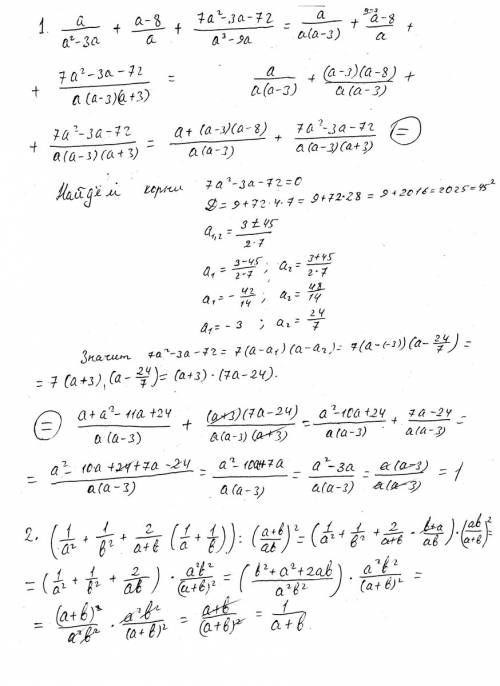 1. a/(a²-3a) + (a-8)/a + (7a²-3a-72)/(a³-9a) = a/(a(a-3)) + ᵃ⁻³⁾(a-8)/a +
+ (7a²-3a-72)/(a(a-3)(a+3)) = a/(a(a-3)) + ((a-3)(a-8))/(a(a-3)) +
+ (7a²-3a-72)/(a(a-3)(a+3)) = (a+(a-3)(a-8))/(a(a-3)) + (7a²-3a-72)/(a(a-3)(a+3)) (=)
Найдём корни 7a²-3a-72=0
D=9+72·4·7=9+72·28=9+2016=2025=45²
a₁,₂ = (3±45)/(2·7)
a₁ = (3-45)/(2·7) ; a₂ = (3+45)/(2·7)
a₁ = -42/14 ; a₂ = 48/14
a₁ = -3 ; a₂ = 24/7
Значит 7a²-3a-72 = 7(a-a₁)(a-a₂) = 7(a-(-3))(a-24/7) =
= 7(a+3)·(a-24/7) = (a+3)·(7a-24).
(=) (a+a²-11a+24)/(a(a-3)) + ((a+3)(7a-24))/(a(a-3)(a+3)) = (a²-10a+24)/(a(a-3)) + (7a-24)/(a(a-3)) =
= (a²-10a+24+7a-24)/(a(a-3)) = (a²-10a+7a)/(a(a-3)) = (a²-3a)/(a(a-3)) = (a(a-3))/(a(a-3)) = 1
2. (1/a² + 1/b² + 2/(a+b) (1/a + 1/b)) : ((a+b)/(ab))² = (1/a² + 1/b² + 2/(a+b) · (b+a)/(ab)) · (ab/(a+b))² =
= (1/a² + 1/b² + 2/(ab)) · a²b²/(a+b)² = ((b²+a²+2ab)/(a²b²)) · a²b²/(a+b)² =
= (a+b)²/(a²b²) · a²b²/(a+b)² = (a+b)/(a+b)² = 1/(a+b).